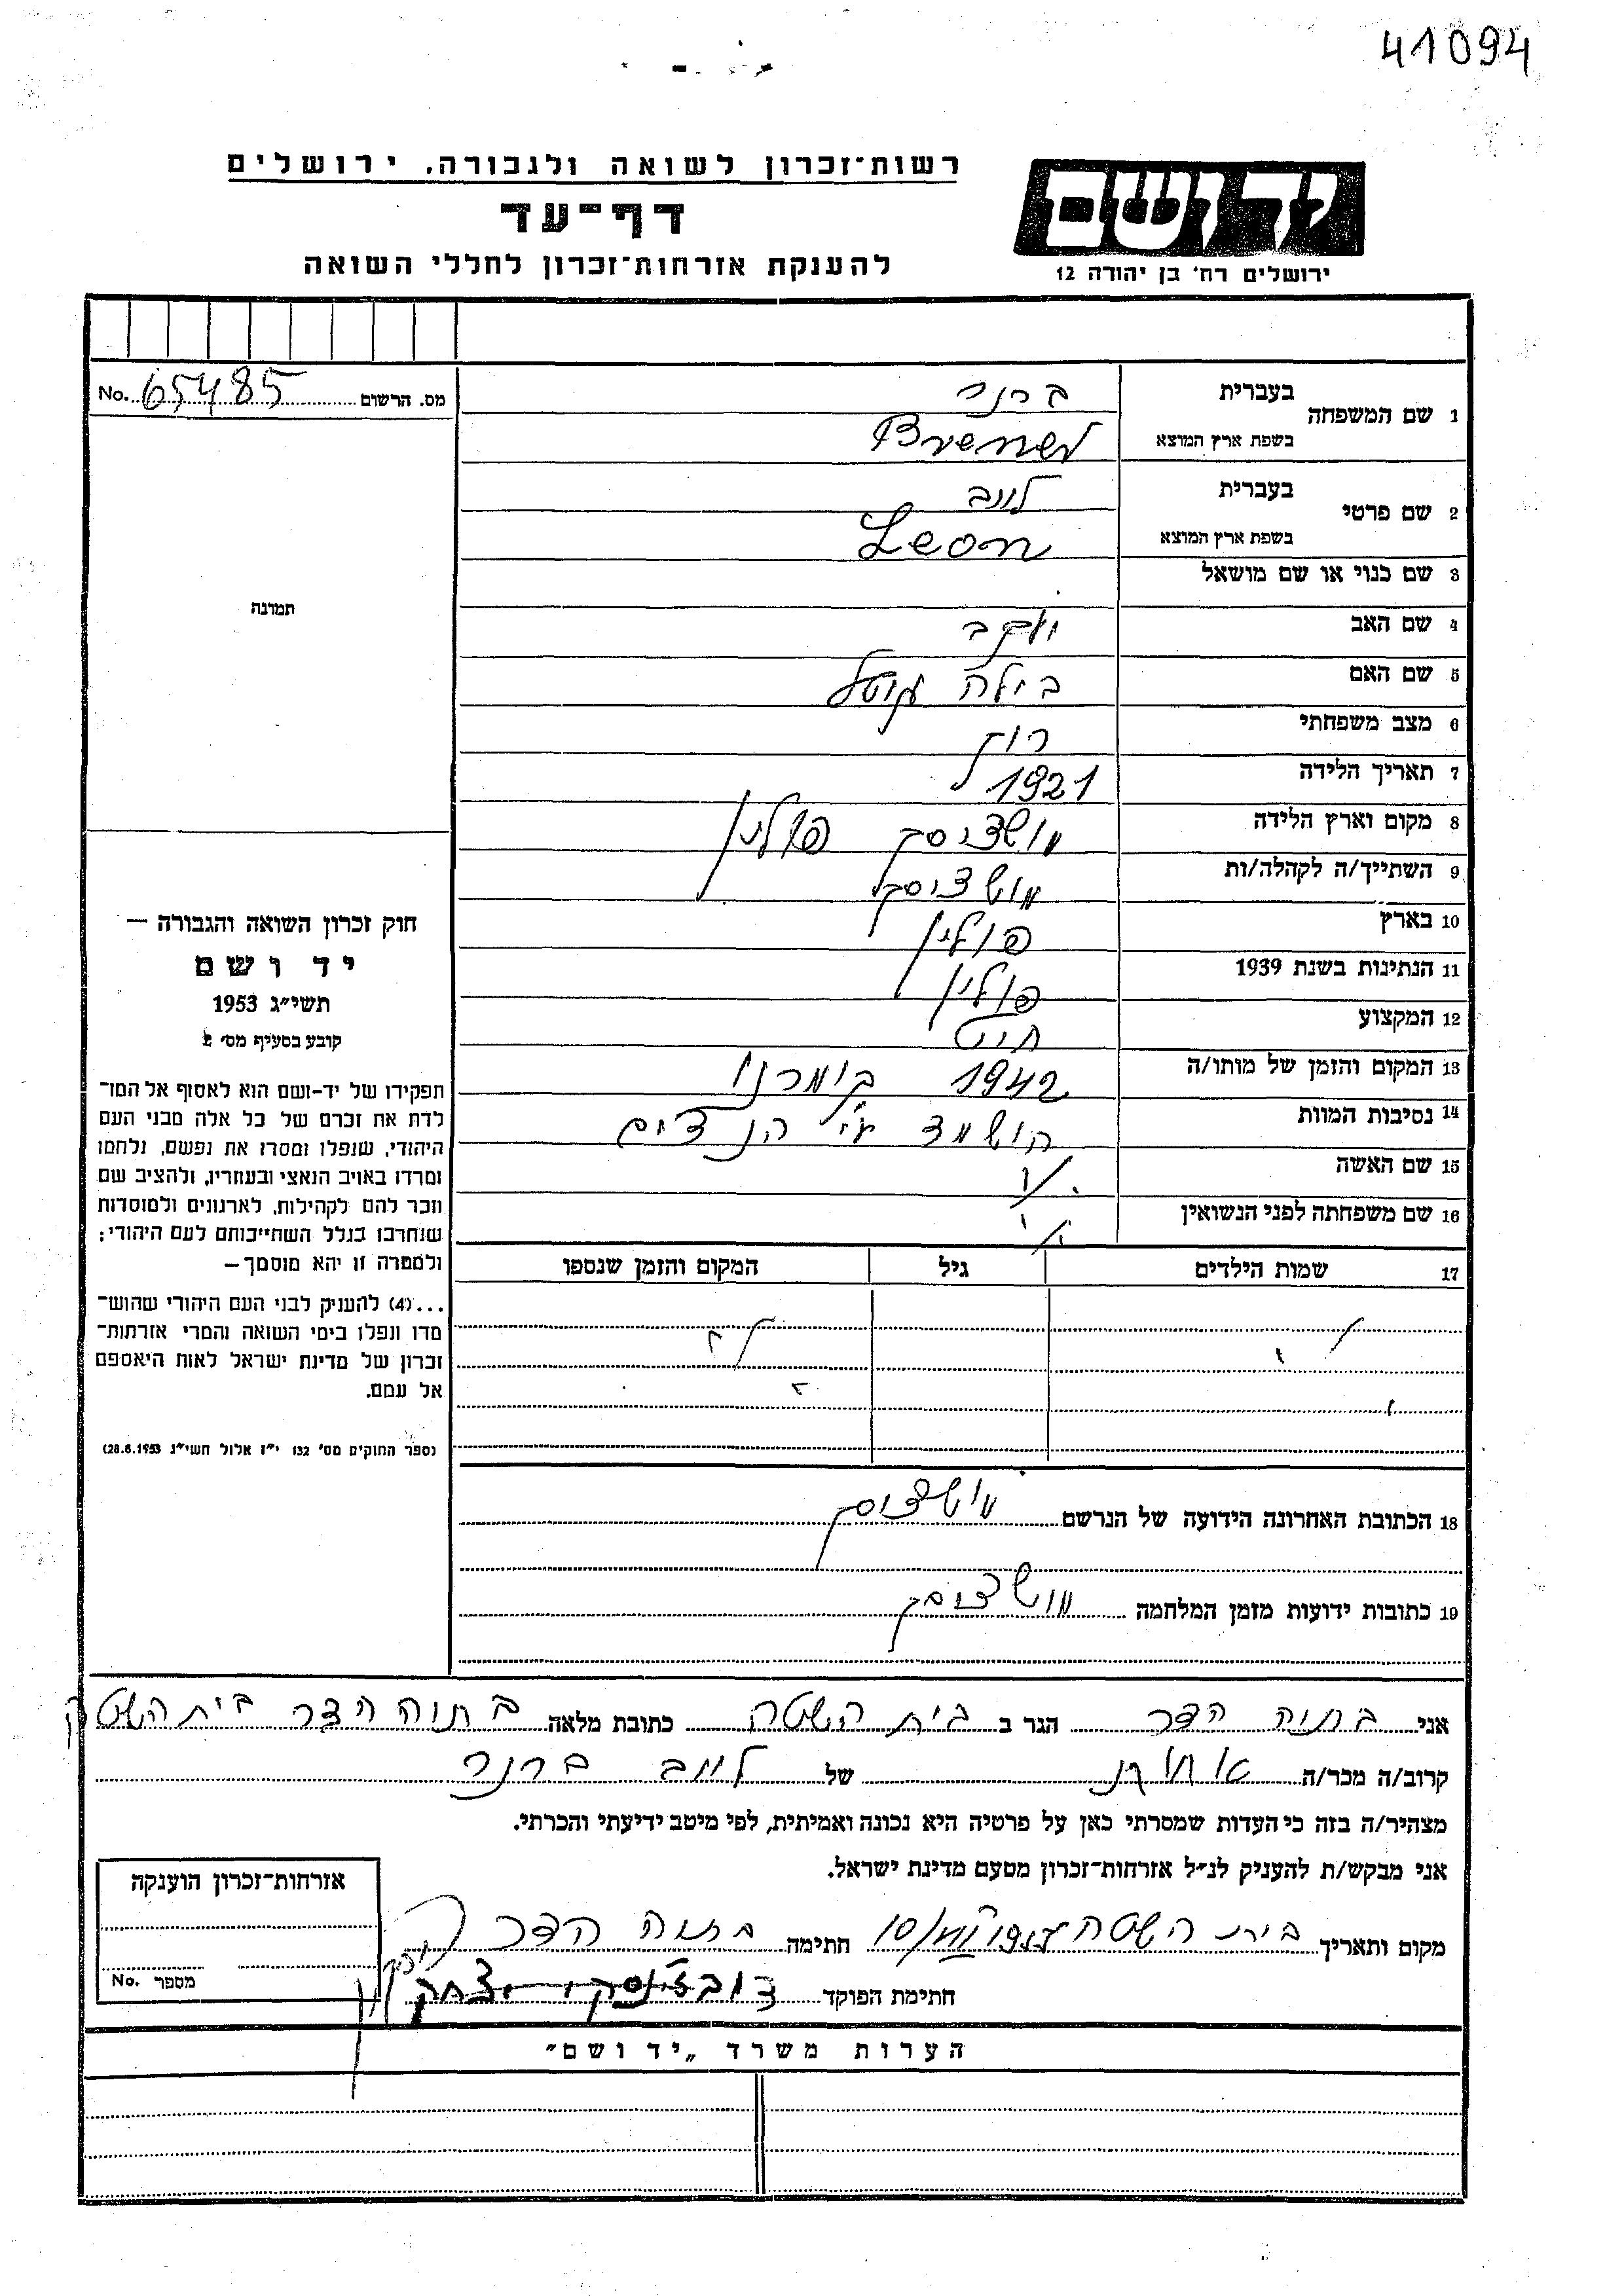 41094
רשות־זכרון לשואה ולגבורה, ירושלים
דף־עד
להענקת אזרחות־זכרון לחללי השואה
יד ושם
ירושלים רח' בן יהודה 12
מס. הרשום 65485 No.
1 שם המשפחה
בעברית ברנר
בשפת ארץ המוצא Brener
2 שם פרטי
בעברית לייב
בשפת ארץ המוצא Leon
3 שם כנוי או שם מושאל
4 שם האב יעקב
5 שם האם בילה
6 מצב משפחתי רוק
7 תאריך הלידה 1921
8 מקום וארץ הלידה פולין
9 השתייך/ה לקהלה/ות
10 בארץ פולין
11 הנתינות בשנת 1939 פולין
12 המקצוע חייט
13 המקום והזמן של מותו/ה 1942
14 נסיבות המוות הושמד ע"י הנצים
15 שם האשה
16 שם משפחתה לפני הנשואין
17 שמות הילדים גיל המקום והזמן שנספו
18 הכתובת האחרונה הידועה של הנרשם
19 כתובות ידועות מזמן המלחמה
תמונה
חוק זכרון השואה והגבורה —
יד ושם
תשי"ג 1953
קובע בסעיף מס' 2
תפקידו של יד־ושם הוא לאסוף אל המו־
לדת את זכרם של כל אלה מבני העם
היהודי, שנפלו ומסרו את נפשם, נלחמו
ומרדו באויב הנאצי ובעוזריו, ולהציב שם
וזכר להם לקהילות, לארגונים ולמוסדות
שנחרבו בגלל השתייכותם לעם היהודי;
ולמטרה זו יהא מוסמך —
...(4) להעניק לבני העם היהודי שהוש־
מדו ונפלו בימי השואה והמרי אזרחות־
זכרון של מדינת ישראל לאות היאספם
אל עמם.
(ספר החוקים מס' 132 י"ז אלול תשי"ג 28.8.1953)
אני בתיה הדר הגר ב בית השטה כתובת מלאה בתיה הדר בית השטה
קרוב/ה מכר/ה של לייב ברנר
מצהיר/ה בזה כי העדות שמסרתי כאן על פרטיה היא נכונה ואמיתית, לפי מיטב ידיעתי והכרתי.
אני מבקש/ת להעניק לנ"ל אזרחות־זכרון מטעם מדינת ישראל.
מקום ותאריך בית השטה חתימה בתיה הדר
חתימת הפוקד יצחק
אזרחות־זכרון הוענקה
מספר No.
הערות משרד "יד ושם"